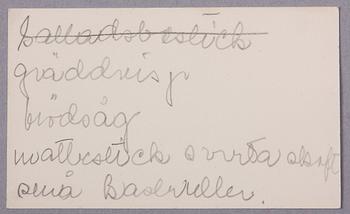 Salladsbestick
gräddvisp
brödsåg
matbestick svarta skaft
små